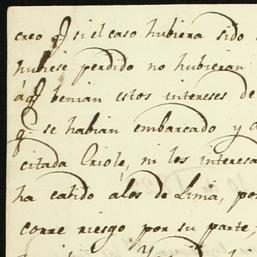 creo q̃ si el caso hubiera sido
hubiese perdido no hubieran
áq̃ benian estos intereses de
q̃ se habian embarcado y
citada Criole, ni los interesa
ha cabido álos de Lima, por
corre riesgo por su parte,